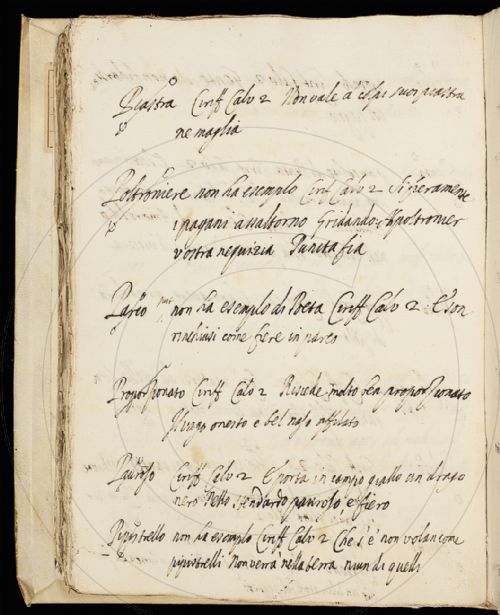 Piastra Ciriff Calv 2 Non vale a colpi suoi piastra
ne maglia
Poltroniere non ha esempio Ciriff Calv 2 Si fieramente
i pagani assaltorno Gridando
vostra nequizia Punita fia
Parco non ha esempio di Poeta Ciriff Calv 2 E son
rinchiusi come fiere in parco
Proporzionato Ciriff Calv 2 Risiede molto proporzionato
Il viso onesto e bel naso affilato
Pauroso Ciriff Calv 2 E porta in campo giallo un drago
nero Nello stendardo pauroso e fiero
Pipistrello non ha esempio Ciriff Calv 2 Che s'e' non volan come
pipistrelli Non verrà nella terra niun di quelli